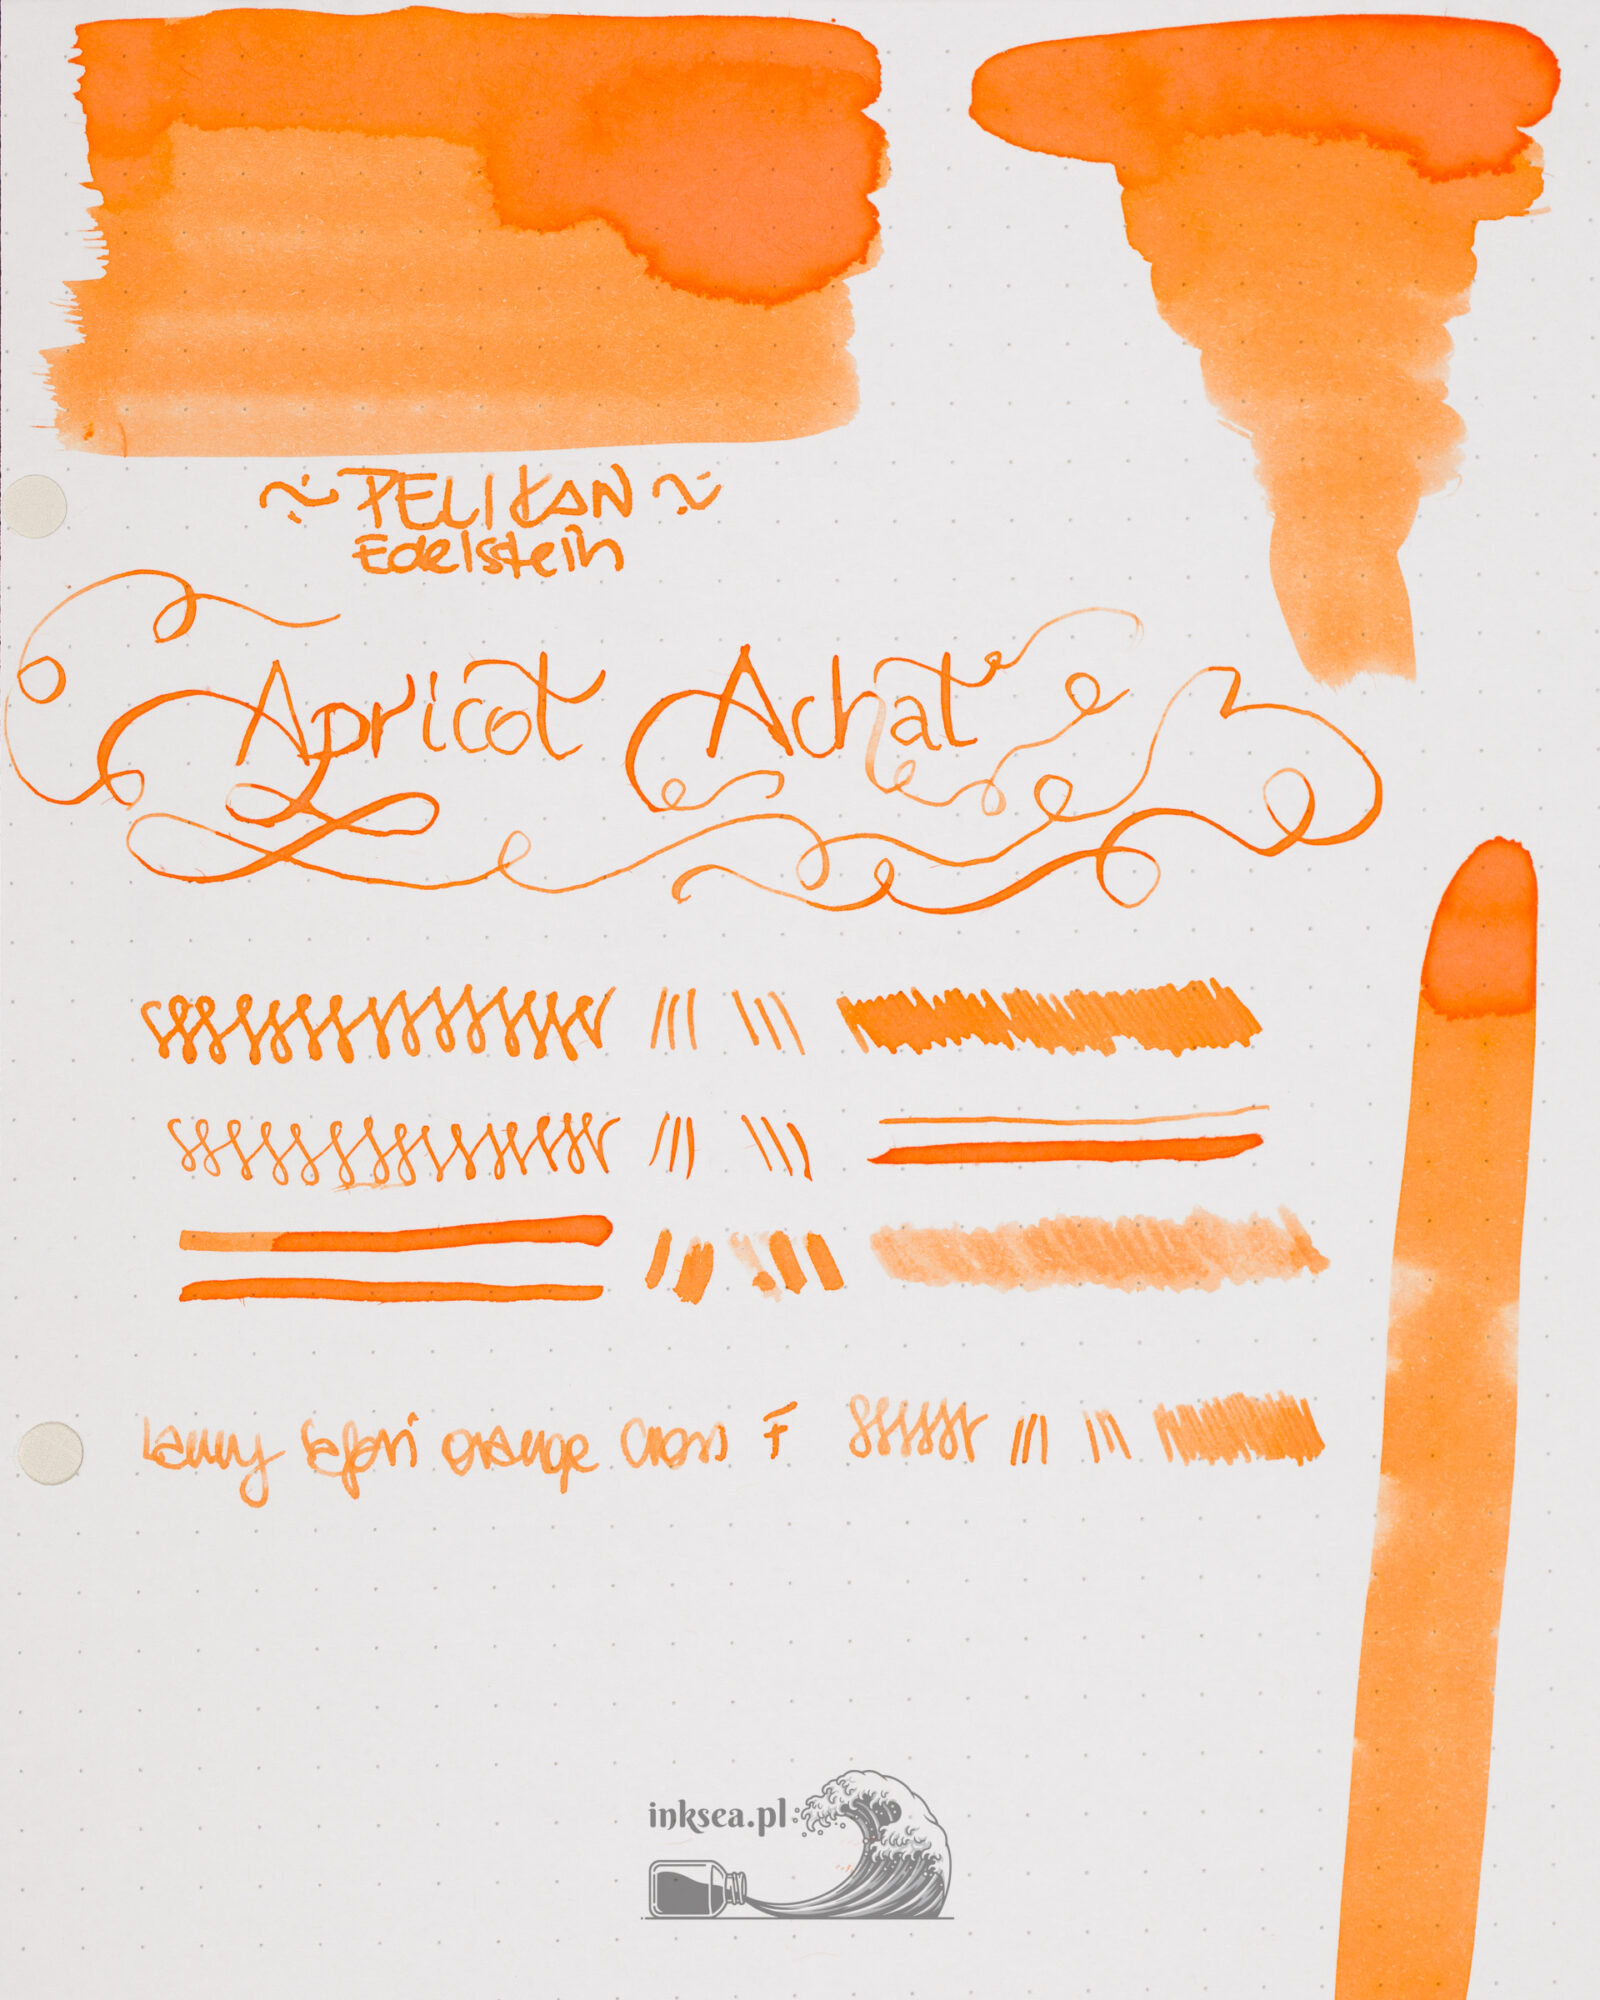 ~ PELIKAN ~
Edelstein
Apricot Achat
Lamy Safari orange Cross F
inksea.pl